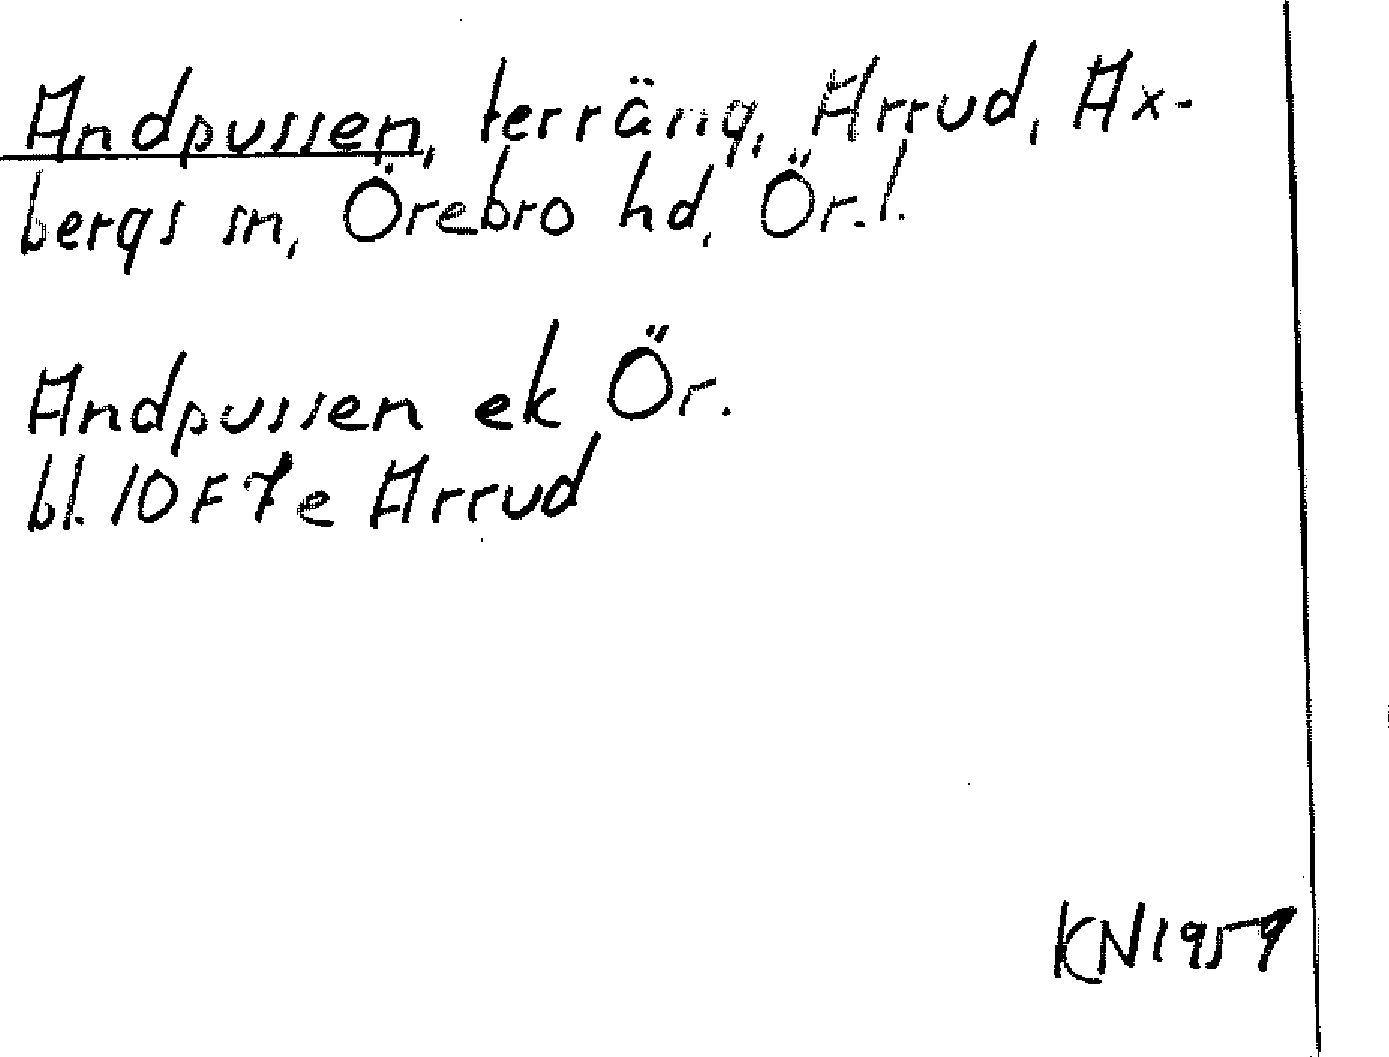 Andpussen, terräng, Arrud, Ax-
bergs sn, Örebro hd, Ör. l.
Andpussen ek Ör.
bl. 10F 7e Arrud
KN 1959